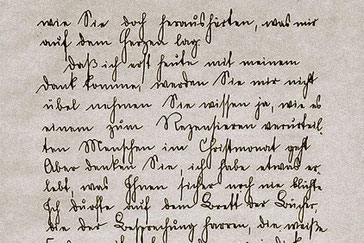 wie Sie doch heraushörten, was mir
auf dem Herzen lag
Daß ich erst heute mit meinem
Dank komme, werden Sie mir nicht
übel nehmen Sie wissen ja, wie es
einem zum Rezensieren verurteil-
ten Menschen im Christmonat geht
Aber denken Sie, ich habe etwas er-
lebt, was Ihnen sicher noch nie blühte
Ich durfte auf dem Brett der Bücher,
die der Besprechung harren, die weiße